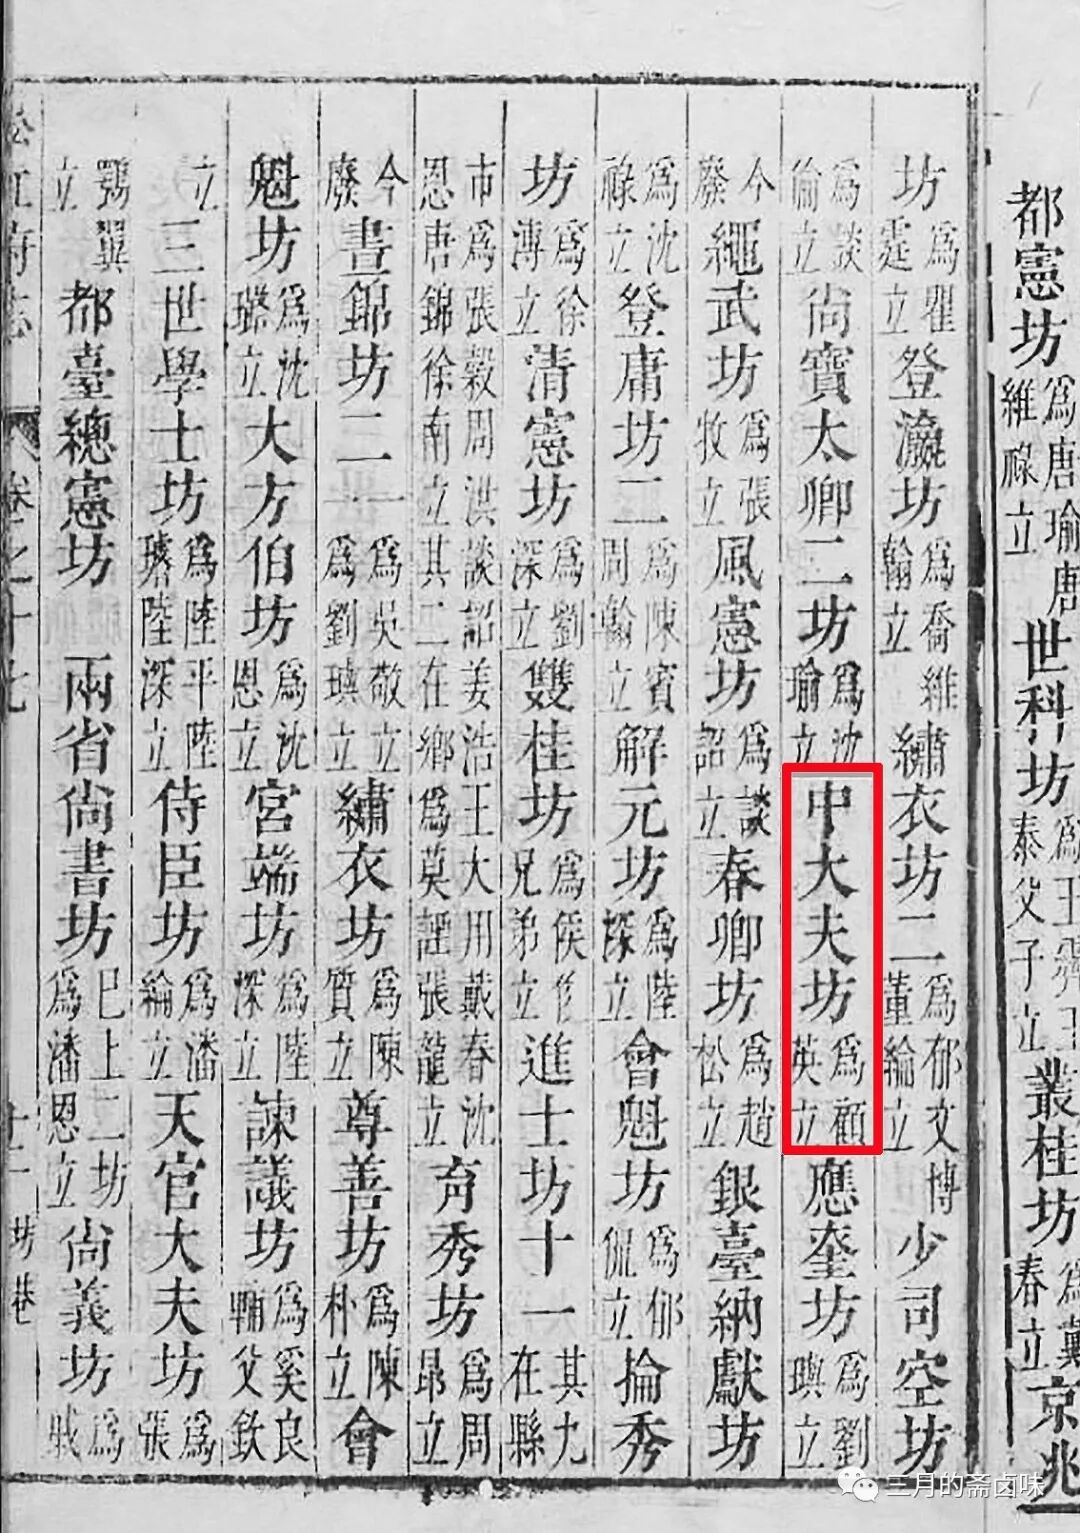 都憲坊為唐瑜唐維祿立世科坊為王霽王泰父子立叢桂坊為戴春立京兆
坊為瞿霆立登瀛坊為喬維翰立繡衣坊二為郁文博董綸立少司空坊
為談倫立尚寶太卿二坊為沈瑜立中大夫坊為顧英立應奎坊為劉璵立
今廢繩武坊為張牧立風憲坊為談詔立春卿坊為趙松立銀臺納獻坊
為沈祿立登庸坊二為陳賓周翰立解元坊為陸深立會魁坊為郁侃立掄秀
坊為徐溥立清憲坊為劉深立雙桂坊為侯兄弟立進士坊十一其九在縣
市為張穀周洪談詔姜浩王大用戴春沈恩唐錦徐南立其二在鄉為莫諲張龍立育秀坊為周昂立
今廢晝錦坊二一為吳敬立為劉璵立繡衣坊為陳質立尊善坊為陳朴立會
魁坊為沈璐立大方伯坊為沈恩立宮端坊為陸深立諫議坊為奚良輔父欽
立三世學士坊為陸平陸璿陸深立侍臣坊為潘綸立天官大夫坊為張
鶚翼立都臺總憲坊兩省尚書坊巳上二坊為潘恩立尚義坊為戚
松江府志卷之十七坊巷
三月的斋卤味